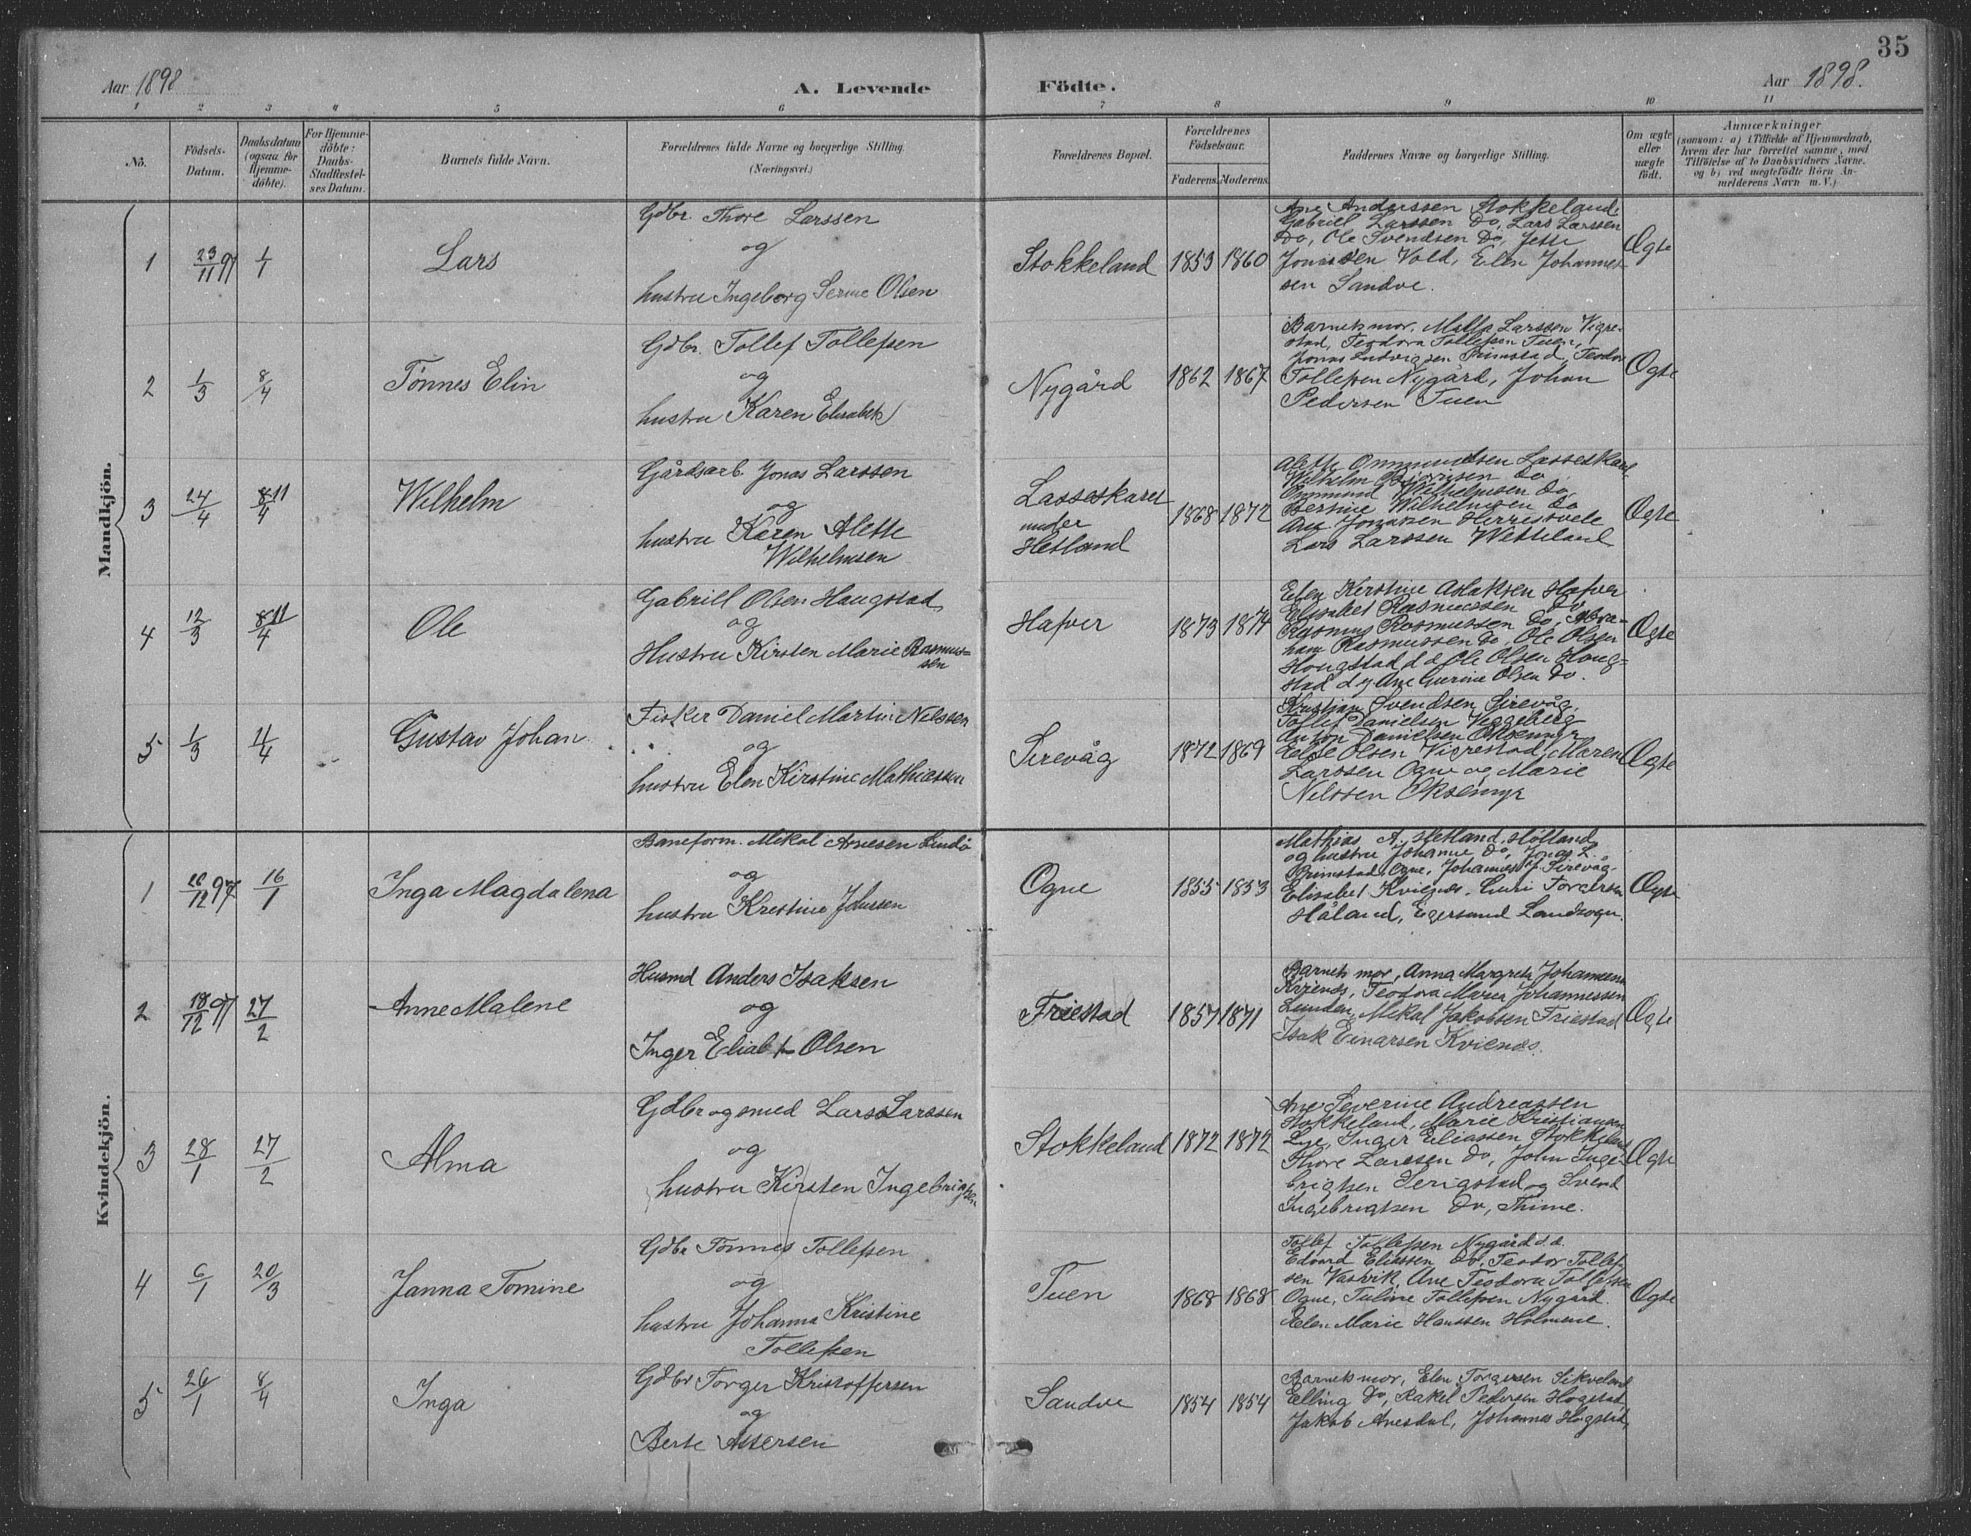 35
Aar 1898
A. Levende
Födte.
Aar 1898.
1 2 3 4 5 6 7 8 9 10 11
No.
Födsels-
Datum.
Daabsdatum
(ogsaa for
Hjemme-
döbte).
For Hjemme-
döbte:
Daabs-
Stadfæstel-
ses Datum.
Barnets fulde Navn.
Forældrenes fulde Navne og borgerlige Stilling.
(Næringsvei.)
Forældrenes Bopæl.
Forældrenes
Födselsaar.
Faderens. Moderens.
Faddernes Navne og borgerlige Stilling.
Om ægte
eller
uægte
födt.
Anmærkninger
(saasom: a) i Tilfælde af Hjemmedaab,
hvem der har forrettet samme, med
Tilföielse af to Daabsvidners Navne.
og b) ved uægtefödte Börn An-
melderens Navn m. V.)
Mandkjön.
1
23/11 97
1/1
Lars
Gdbr. Thore Larssen
og
hustru Ingeborg Serine Olsen
Stokkeland
1853 1860
Ane Anderssen Stokkeland,
Gabriell Larssen Do, Lars Larssen
Do, Ole Svendsen Do, Jette
Jonassen Vold, Elen Johannes-
sen Sandve.
Ægte
2
1/3
8/4
Tönnes Elin
Gdbr. Tollef Tollefsen
og
hustru Karen Elisabet
Nygård
1862 1867
Barnets mor. Malla Larssen Vigre-
stad, Teodora Tollefsen Tuen,
Jonas Ludvigsen Brimstad, Teodor
Tollefsen Nygård, Johan
Pedersen Tuen
Ægte
3
24/4
Wilhelm
Gårdsarb. Jonas Larssen
og
hustru Karen Alette
Wilhelmsen
Lasseskaret
under
Hetland
1868 1872
Alette Ommundsen Lasseskaret
Wilhelm Do.
Ommund Wilhelmsen Do,
Bertine Wilhelmsen Do
Ane Jonassen
Lars Larssen Wetteland
Ægte
4
12/3
Ole
Gabriell Olsen Haugstad
og
Hustru Kirsten Marie Rasmus-
sen
Hafver
1873 1874
Elen Kirstine Aslaksen Hafver
Elisabet Rasmussen Do
Rasmus Rasmussen Do, Abra-
ham Rasmussen Do, Ole Olsen
Hougstad d æ Ole Olsen Houg-
stad d y Ane Gurine Olsen Do.
Ægte
5
1/3
11/4
Gustav Johan
Fisker Daniel Martin Nilssen
og
hustru Elen Kirstine Mathiassen
Sirevåg
1872 1869
Kristian Svendsen Sirevåg,
Tollef Danielsen
Anton Danielsen
Olsen Vigrestad, Maren
Larssen Ogne og Marie
Nilssen
Ægte
Kvindekjön.
1
20/12 97
16/1
Inga Magdalena
Baneform. Mikal Arnesen Lindö
og
hustru Kristine Johnsen
Ogne
1855 1853
Mathias A. Hetland, Hölland
og hustru Johanne Do, Jonas L.
Brimstad, Ogne, Johannes J. Sirevåg
Elisabet Kvienes, Guri Torgersen
Håland, Egersund Landsogn.
Ægte
2
18/12 97
27/2
Anne Malene
Husmd Anders Isaksen
og
Inger Eliabet Olsen
Friestad
1857 1871
Barnets mor, Anna Margreta Johannesen
Kvienes, Teodora Maria Johannessen
Lunden, Mikal Jakobsen Friestad
Isak Einarsen Kvienes.
Ægte
3
28/1
27/2
Alma
Gdbr og smed Lars Larssen
og
hustru Kirsten Ingebrigtsen
Stokkeland
1872 1872
Ane Severine Andreassen
Stokkeland, Marie Kristiansen
Lye, Inger Eliassen Stokkeland
Thore Larssen Do, John Inge-
brigtsen Serigstad og Svend
Ingebrigtsen Do, Thime.
Ægte
4
6/1
20/3
Janna Tomine
Gdbr Tönnes Tollefsen
og
hustru Johanna Kristine
Tollefsen
Tuen
1868 1868
Tollef Tollefsen Nygård d.æ.
Edvard Eliassen Do, Teodor Tollef-
sen Vasvik, Ane Teodora Tollefsen
Ogne, Tuline Tollefsen Nygård.
Elen Marie Hanssen Holmene.
Ægte
5
26/1
8/4
Inga
Gdbr Torger Kristoffersen
og
Berte Assersen
Sandve
1854 1854
Barnets mor, Elen Torgersen
Elling Do, Rakel Pedersen Hogstad,
Jakob Avesdal, Johannes Hogstad,